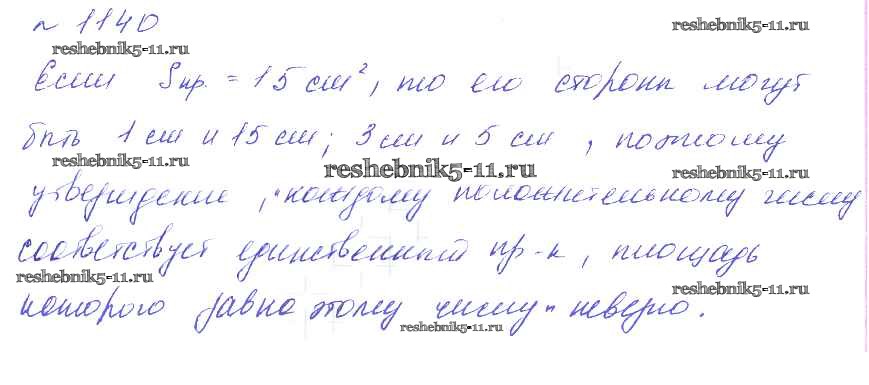 № 1140
reshebnik5-11.ru
reshebnik5-11.ru
Если Sпр. = 15 см², то его стороны могут
быть 1 см и 15 см; 3 см и 5 см, поэтому
reshebnik5-11.ru
reshebnik5-11.ru
reshebnik5-11.ru
утверждение „каждому положительному числу
соответствует единственный пр-к, площадь
reshebnik5-11.ru
reshebnik5-11.ru
которого равна этому числу" неверно.
reshebnik5-11.ru